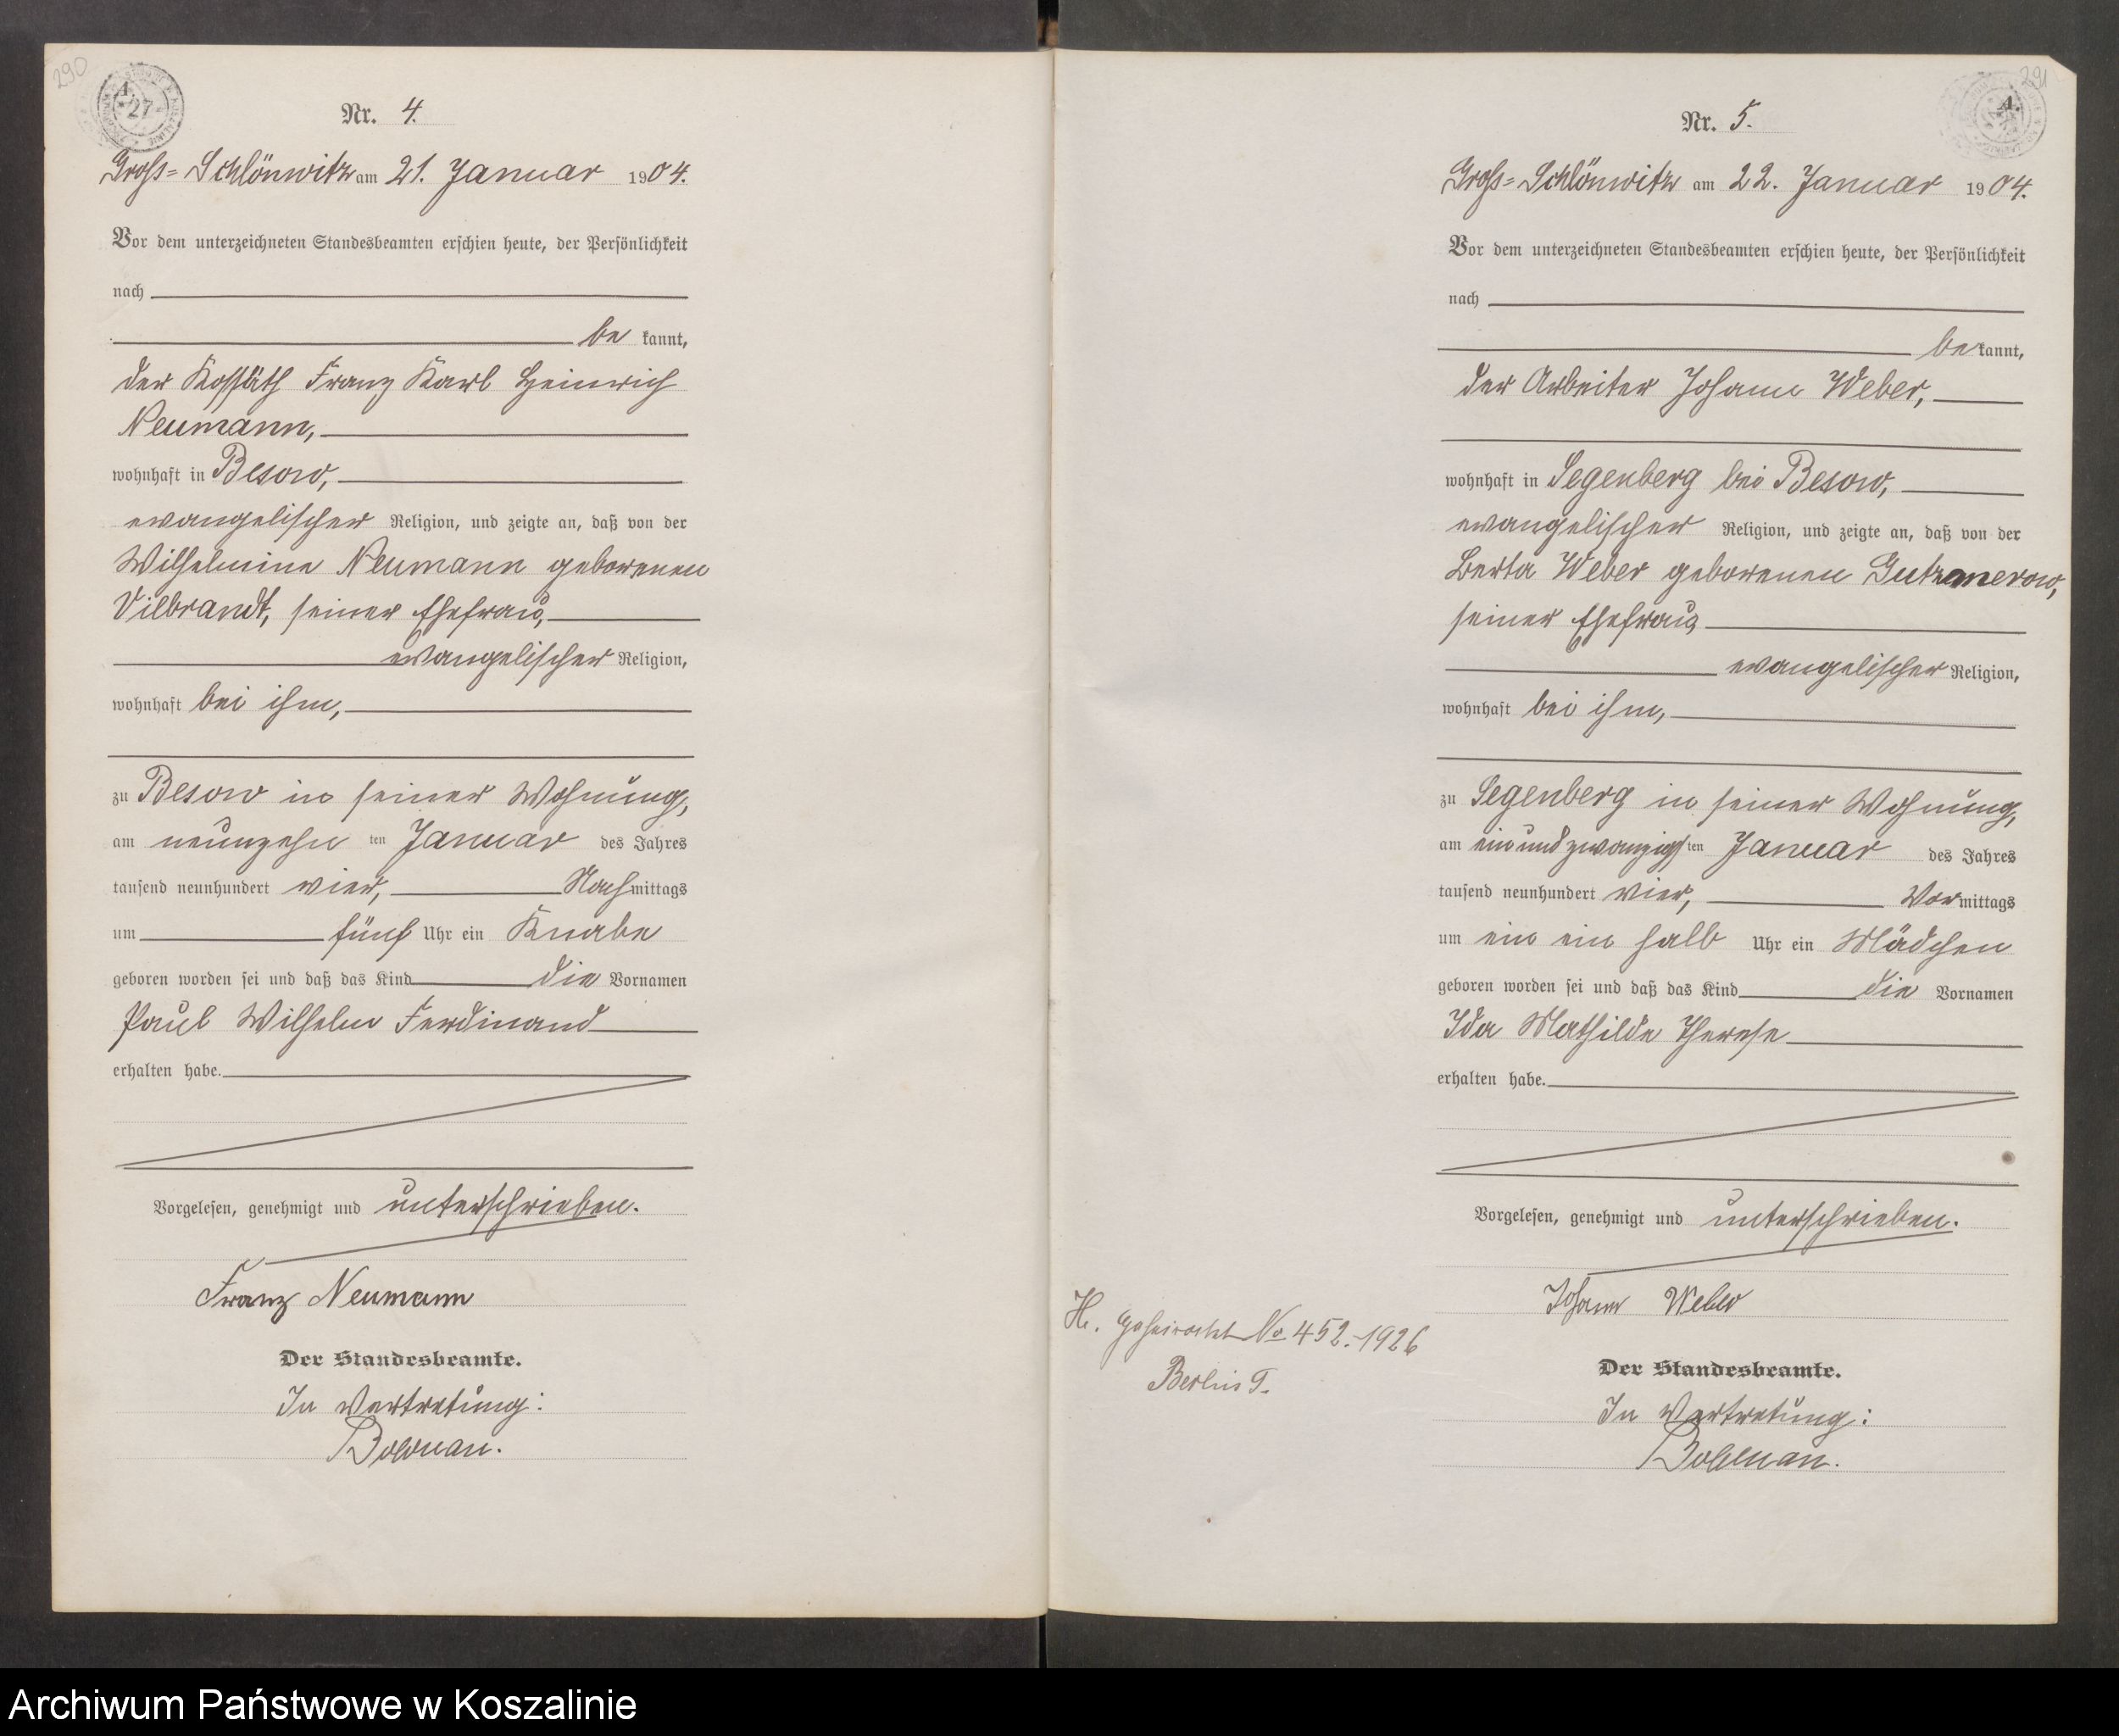 290
A.
27
Nr. 4.
Gross=Schlönwitz am 21. Januar 1904.
Vor dem unterzeichneten Standesbeamten erschien heute, der Persönlichkeit
nach
be kannt,
der Kossäth Franz Karl Heinrich
Neumann,
wohnhaft in Besow,
evangelischer Religion, und zeigte an, daß von der
Wilhelmine Neumann geborenen
Vilbrandt, seiner Ehefrau,
evangelischer Religion,
wohnhaft bei ihm,
zu Besow in seiner Wohnung,
am neunzehn ten Januar des Jahres
tausend neunhundert vier, Nachmittags
um fünf Uhr ein Knabe
geboren worden sei und daß das Kind die Vornamen
Paul Wilhelm Ferdinand
erhalten habe.
Vorgelesen, genehmigt und unterschrieben.
Franz Neumann
Der Standesbeamte.
In Vertretung:
291
A.
Nr. 5.
Gross=Schlönwitz am 22. Januar 1904.
Vor dem unterzeichneten Standesbeamten erschien heute, der Persönlichkeit
nach
bekannt,
der Arbeiter Johann Weber,
wohnhaft in Segenberg bei Besow,
evangelischer Religion, und zeigte an, daß von der
Berta Weber geborenen Gutzmerow,
seiner Ehefrau
evangelischer Religion,
wohnhaft bei ihm,
zu Segenberg in seiner Wohnung,
am einundzwanzigsten Januar des Jahres
tausend neunhundert vier, Vormittags
um ein ein halb Uhr ein Mädchen
geboren worden sei und daß das Kind die Vornamen
Ida Mathilde Therese
erhalten habe.
Vorgelesen, genehmigt und unterschrieben.
Johann Weber
Der Standesbeamte.
In Vertretung:
No 452.-1926
Berlin
Archiwum Państwowe w Koszalinie